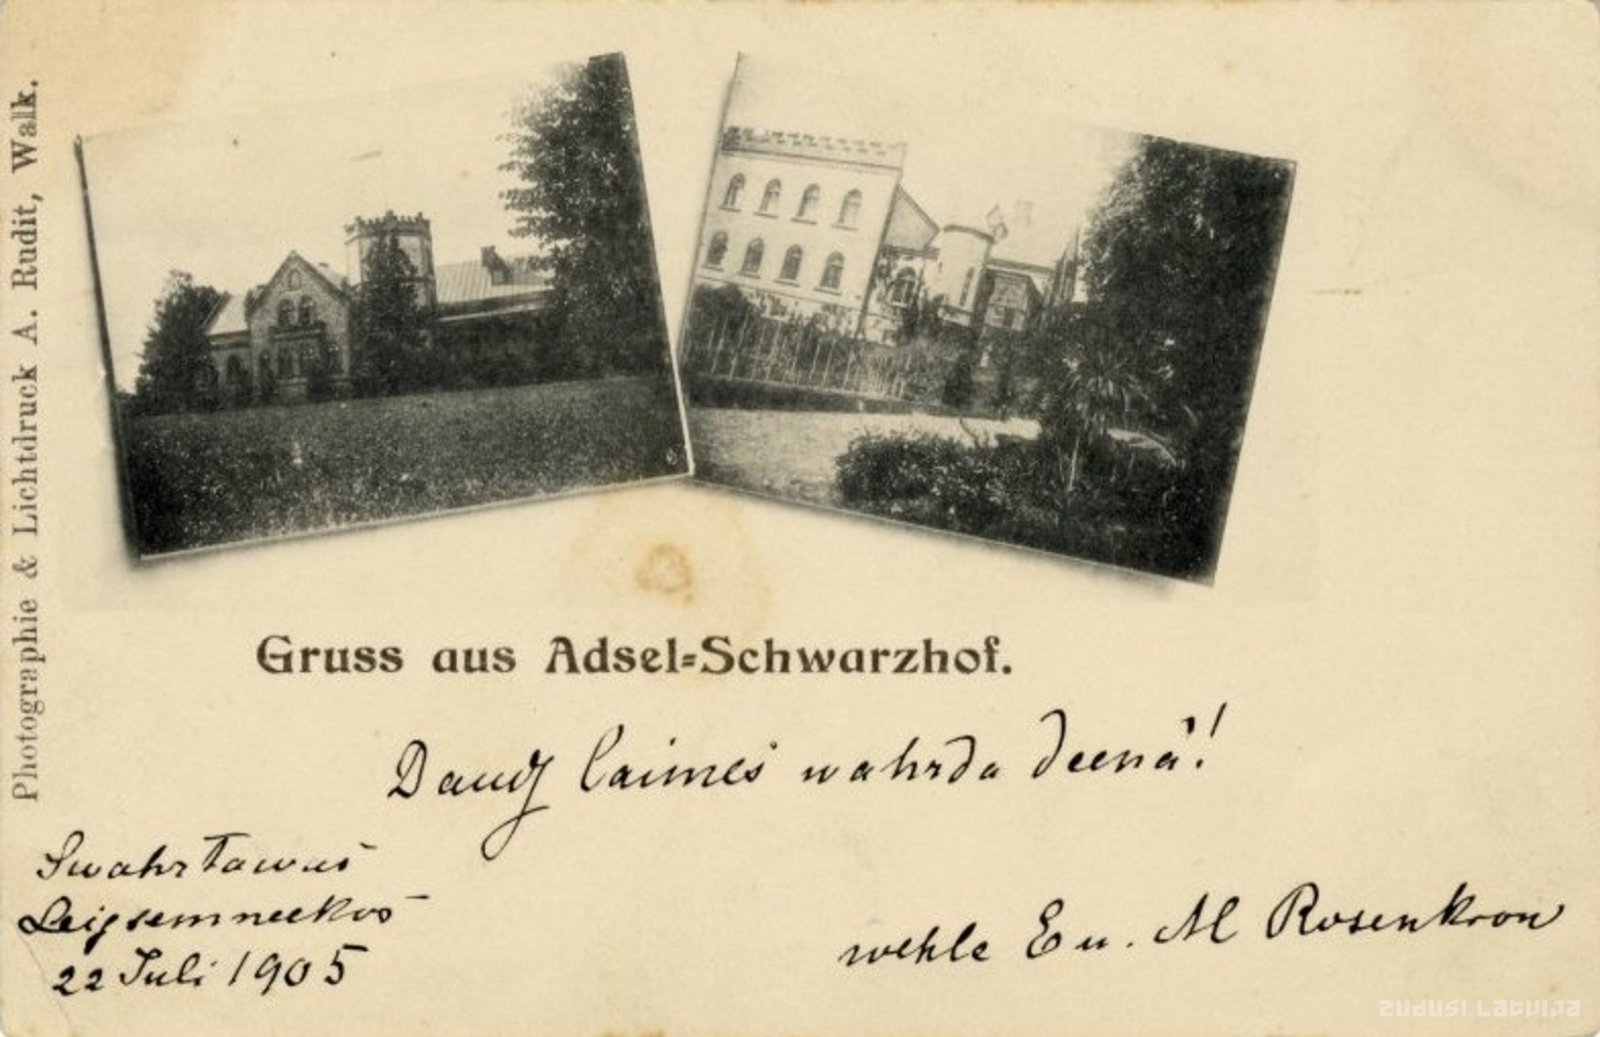 Photographie & Lichtdruck A. Rudit, Walk.
Gruss aus Adsel-Schwarzhof.
Daudz laimes wahrda deenā!
Swahrtawas
Leijsemneekos
22 Juli 1905
wehle E u. M Rosenkron
zudusi Latvija